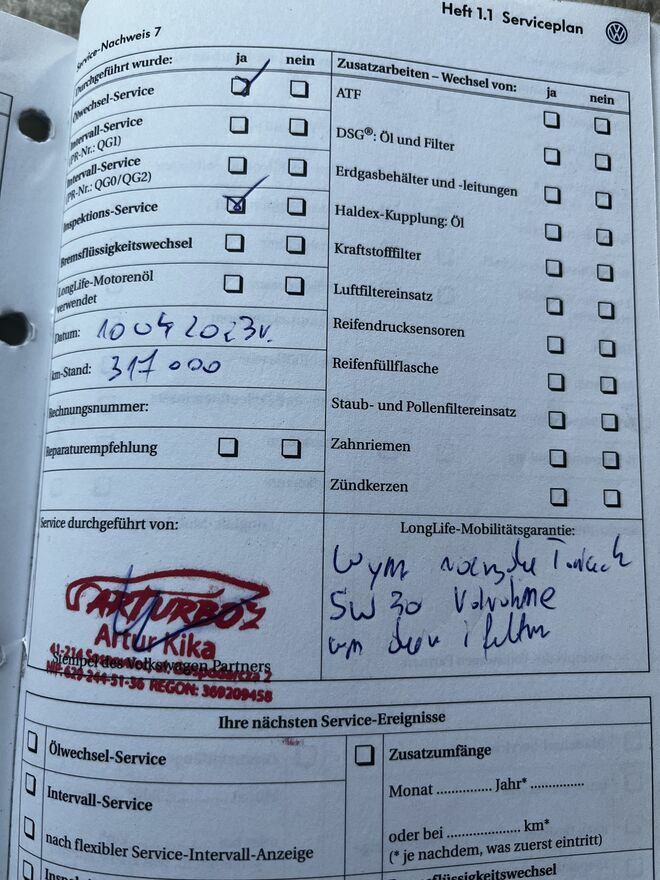 Heft 1.1 Serviceplan
Service-Nachweis 7
Durchgeführt wurde: ja nein
Ölwechsel-Service
Intervall-Service
(PR-Nr.: QG1)
Intervall-Service
(PR-Nr.: QG0/QG2)
Inspektions-Service
Bremsflüssigkeitswechsel
LongLife-Motorenöl
verwendet
Datum: 10 04 2023r.
km-Stand: 317 000
Rechnungsnummer:
Reparaturempfehlung
Zusatzarbeiten – Wechsel von: ja nein
ATF
DSG®: Öl und Filter
Erdgasbehälter und -leitungen
Haldex-Kupplung: Öl
Kraftstofffilter
Luftfiltereinsatz
Reifendrucksensoren
Reifenfüllflasche
Staub- und Pollenfiltereinsatz
Zahnriemen
Zündkerzen
Service durchgeführt von:
Artur Kika
Stempel des Volkswagen Partners
41-214
2
NIP: 629-244-51-36 REGON: 369209458
LongLife-Mobilitätsgarantie:
Wym
5W30
Ihre nächsten Service-Ereignisse
Ölwechsel-Service
Intervall-Service
nach flexibler Service-Intervall-Anzeige
Zusatzumfänge
Monat ............... Jahr* ...............
oder bei .................... km*
(* je nachdem, was zuerst eintritt)